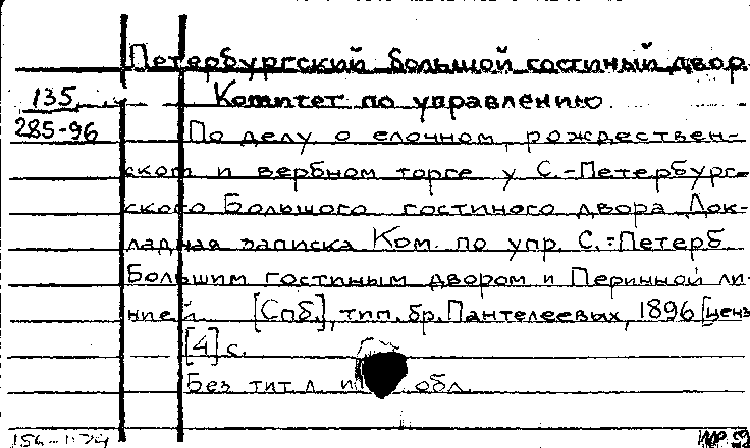 Петербургский большой гостиный двор.
135 Комитет по управлению.
285-96 По делу о елочном, рождествен-
ском и вербном торге у С.-Петербург-
ского Большого гостиного двора. Док-
ладная записка Ком. по упр. С.-Петерб.
Большим гостиным двором и Перинной ли-
нией. [Спб.], тип. бр. Пантелеевых, 1896 [ценз
[4] с.
Без тит. л. и обл.